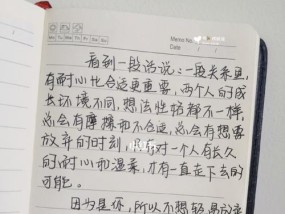 Memo No.
Date
Mo Tu We Th Fr Sa Su
看到一段话说：一段关系里，
有耐心比合适更重要，两个人的成
长环境不同，想法性格都不一样，
总会有摩擦和不合适，总会有想要
放弃的时刻，对一个人有长久
的耐心和温柔，才有一直走下去的
可能。
因为是你，所以不想轻易放弃